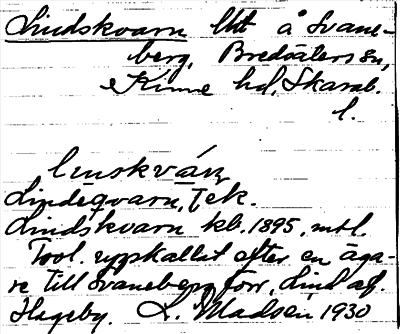 Lindskvarn lht å Svane-
berg, Bredsäters sn,
Kinne hd, Skarab.
l.
linskvá̄ɳ
Lindeqvarn, Jek.
Lindskvarn kb. 1895, mtl.
Trol. uppkallat efter en äga-
re till Svaneberg förr, Lind af
Hageby. L. Madsén 1930